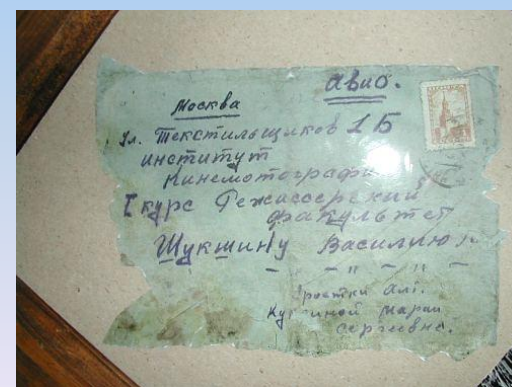 Авио.
Москва
Ул. Текстильщиков 1Б
институт
Кинемотографи
I курс Режиссерский
факультет
Шукшину Василию
- - " - " -
Сростки Алт.
Марии
Сергеевна.